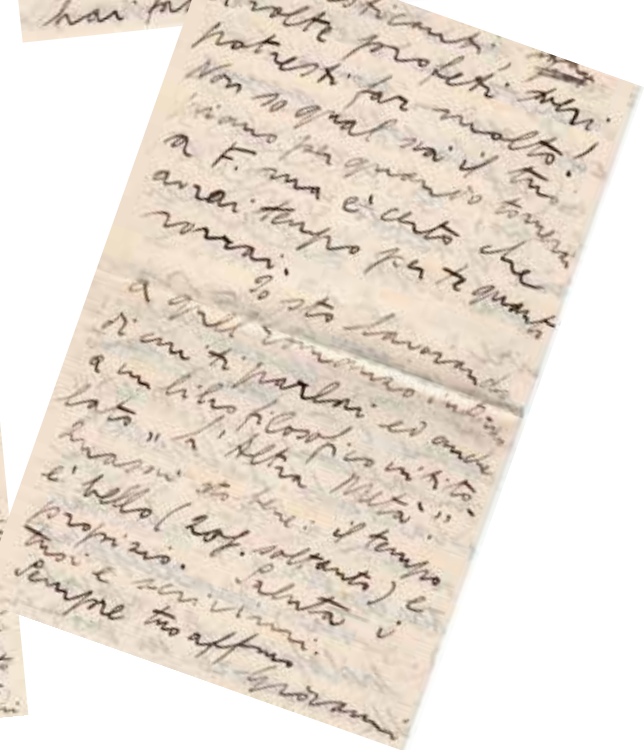 hai
molte
potresti far molto!
Non so qual sia il tuo
per quando tornerai
a F. ma è certo che
avrai tempo per te quanto
vorrai.
Io sto lavorando
a quel romanzo intimo
di cui ti parlai ed anche
a un libro filosofico intito-
lato "L'Altra Metà".
sto bene: il tempo
è bello (20g. soltanto) e
propizio. Saluta i
tuoi e scrivimi.
Sempre tuo affmo
Giovanni